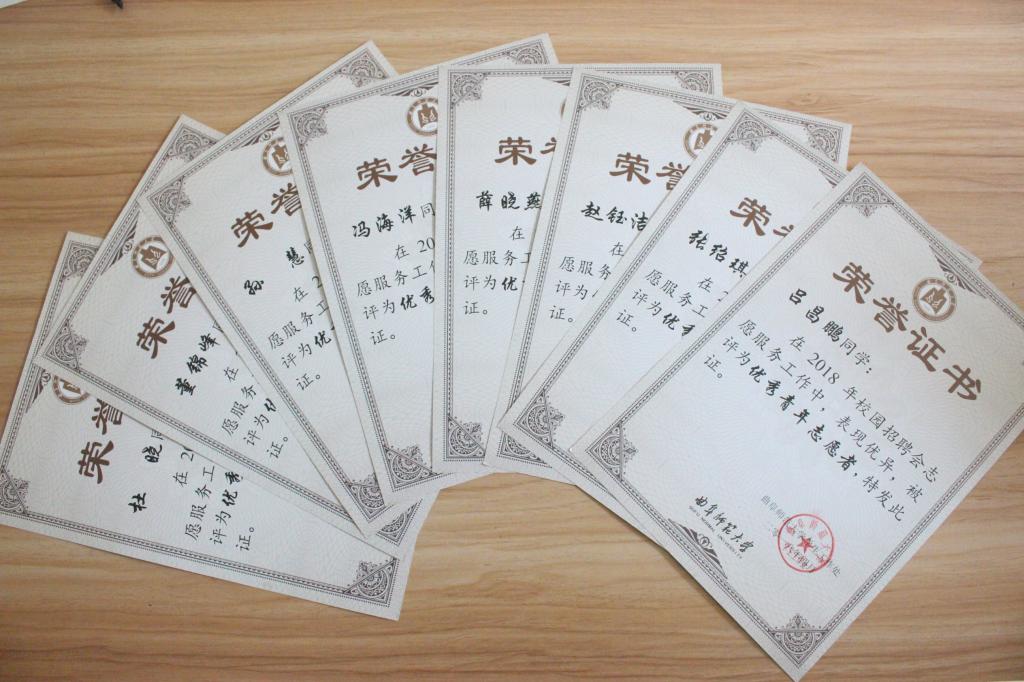 荣誉
杜 晓
在 2
愿服务工
评为优秀
证。
荣誉
董锦峰
在
愿服务
评为优
证。
荣誉
孙 慧同
在 2
愿服务工
评为优
证。
荣誉
冯海洋同
在 20
愿服务工作
评为优秀
证。
荣
薛晓燕
在
愿服务
评为优
证。
荣誉
赵钰洁
在
愿服务
评为
证。
荣
张绍琪
在 2
愿服务工
评为优秀
证。
荣誉证书
吕昌鹏同学：
在 2018 年校园招聘会志
愿服务工作中，表现优异，被
评为优秀青年志愿者，特发此
证。
曲阜师范大学